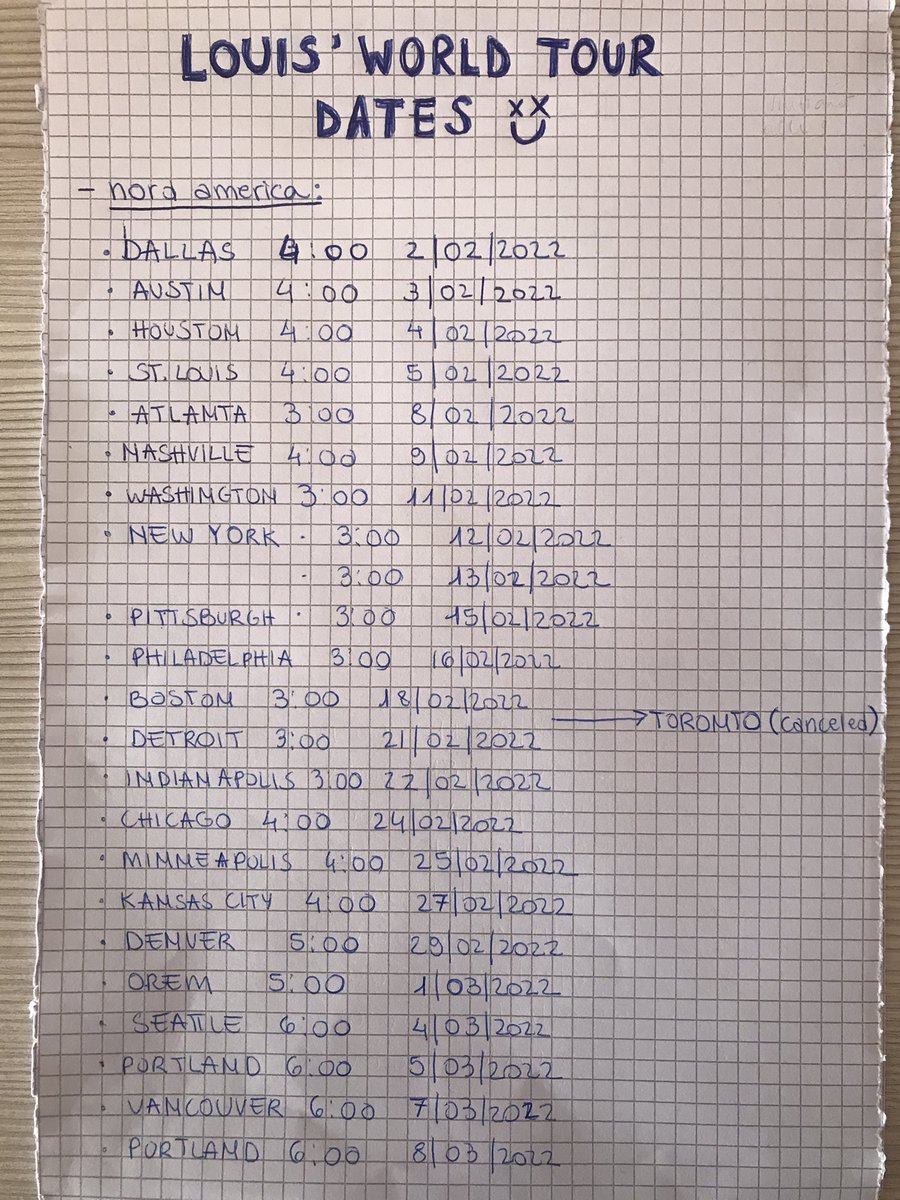 LOUIS' WORLD TOUR
DATES
- nord america:
• DALLAS 4:00 2/02/2022
• AUSTIM 4:00 3/02/2022
• HOUSTOM 4:00 4/02/2022
• ST. LOUIS 4:00 5/02/2022
• ATLAMTA 3:00 8/02/2022
• MASHVILLE 4:00 9/02/2022
• WASHIMGTOM 3:00 11/02/2022
• NEW YORK · 3:00 12/02/2022
· 3:00 13/02/2022
• PITTSBURGH · 3:00 15/02/2022
• PHILADELPHIA 3:00 16/02/2022
• BOSTOM 3:00 18/02/2022
→ TOROMTO (canceled)
• DETROIT 3:00 21/02/2022
• INDIANAPOLIS 3:00 22/02/2022
• CHICAGO 4:00 24/02/2022
• MIMMEAPOLIS 4:00 25/02/2022
• KAMSAS CITY 4:00 27/02/2022
• DEMVER 5:00 29/02/2022
• OREM 5:00 1/03/2022
• SEATTLE 6:00 4/03/2022
• PORTLAMD 6:00 5/03/2022
• VAMCOUVER 6:00 7/03/2022
• PORTLAMD 6:00 8/03/2022